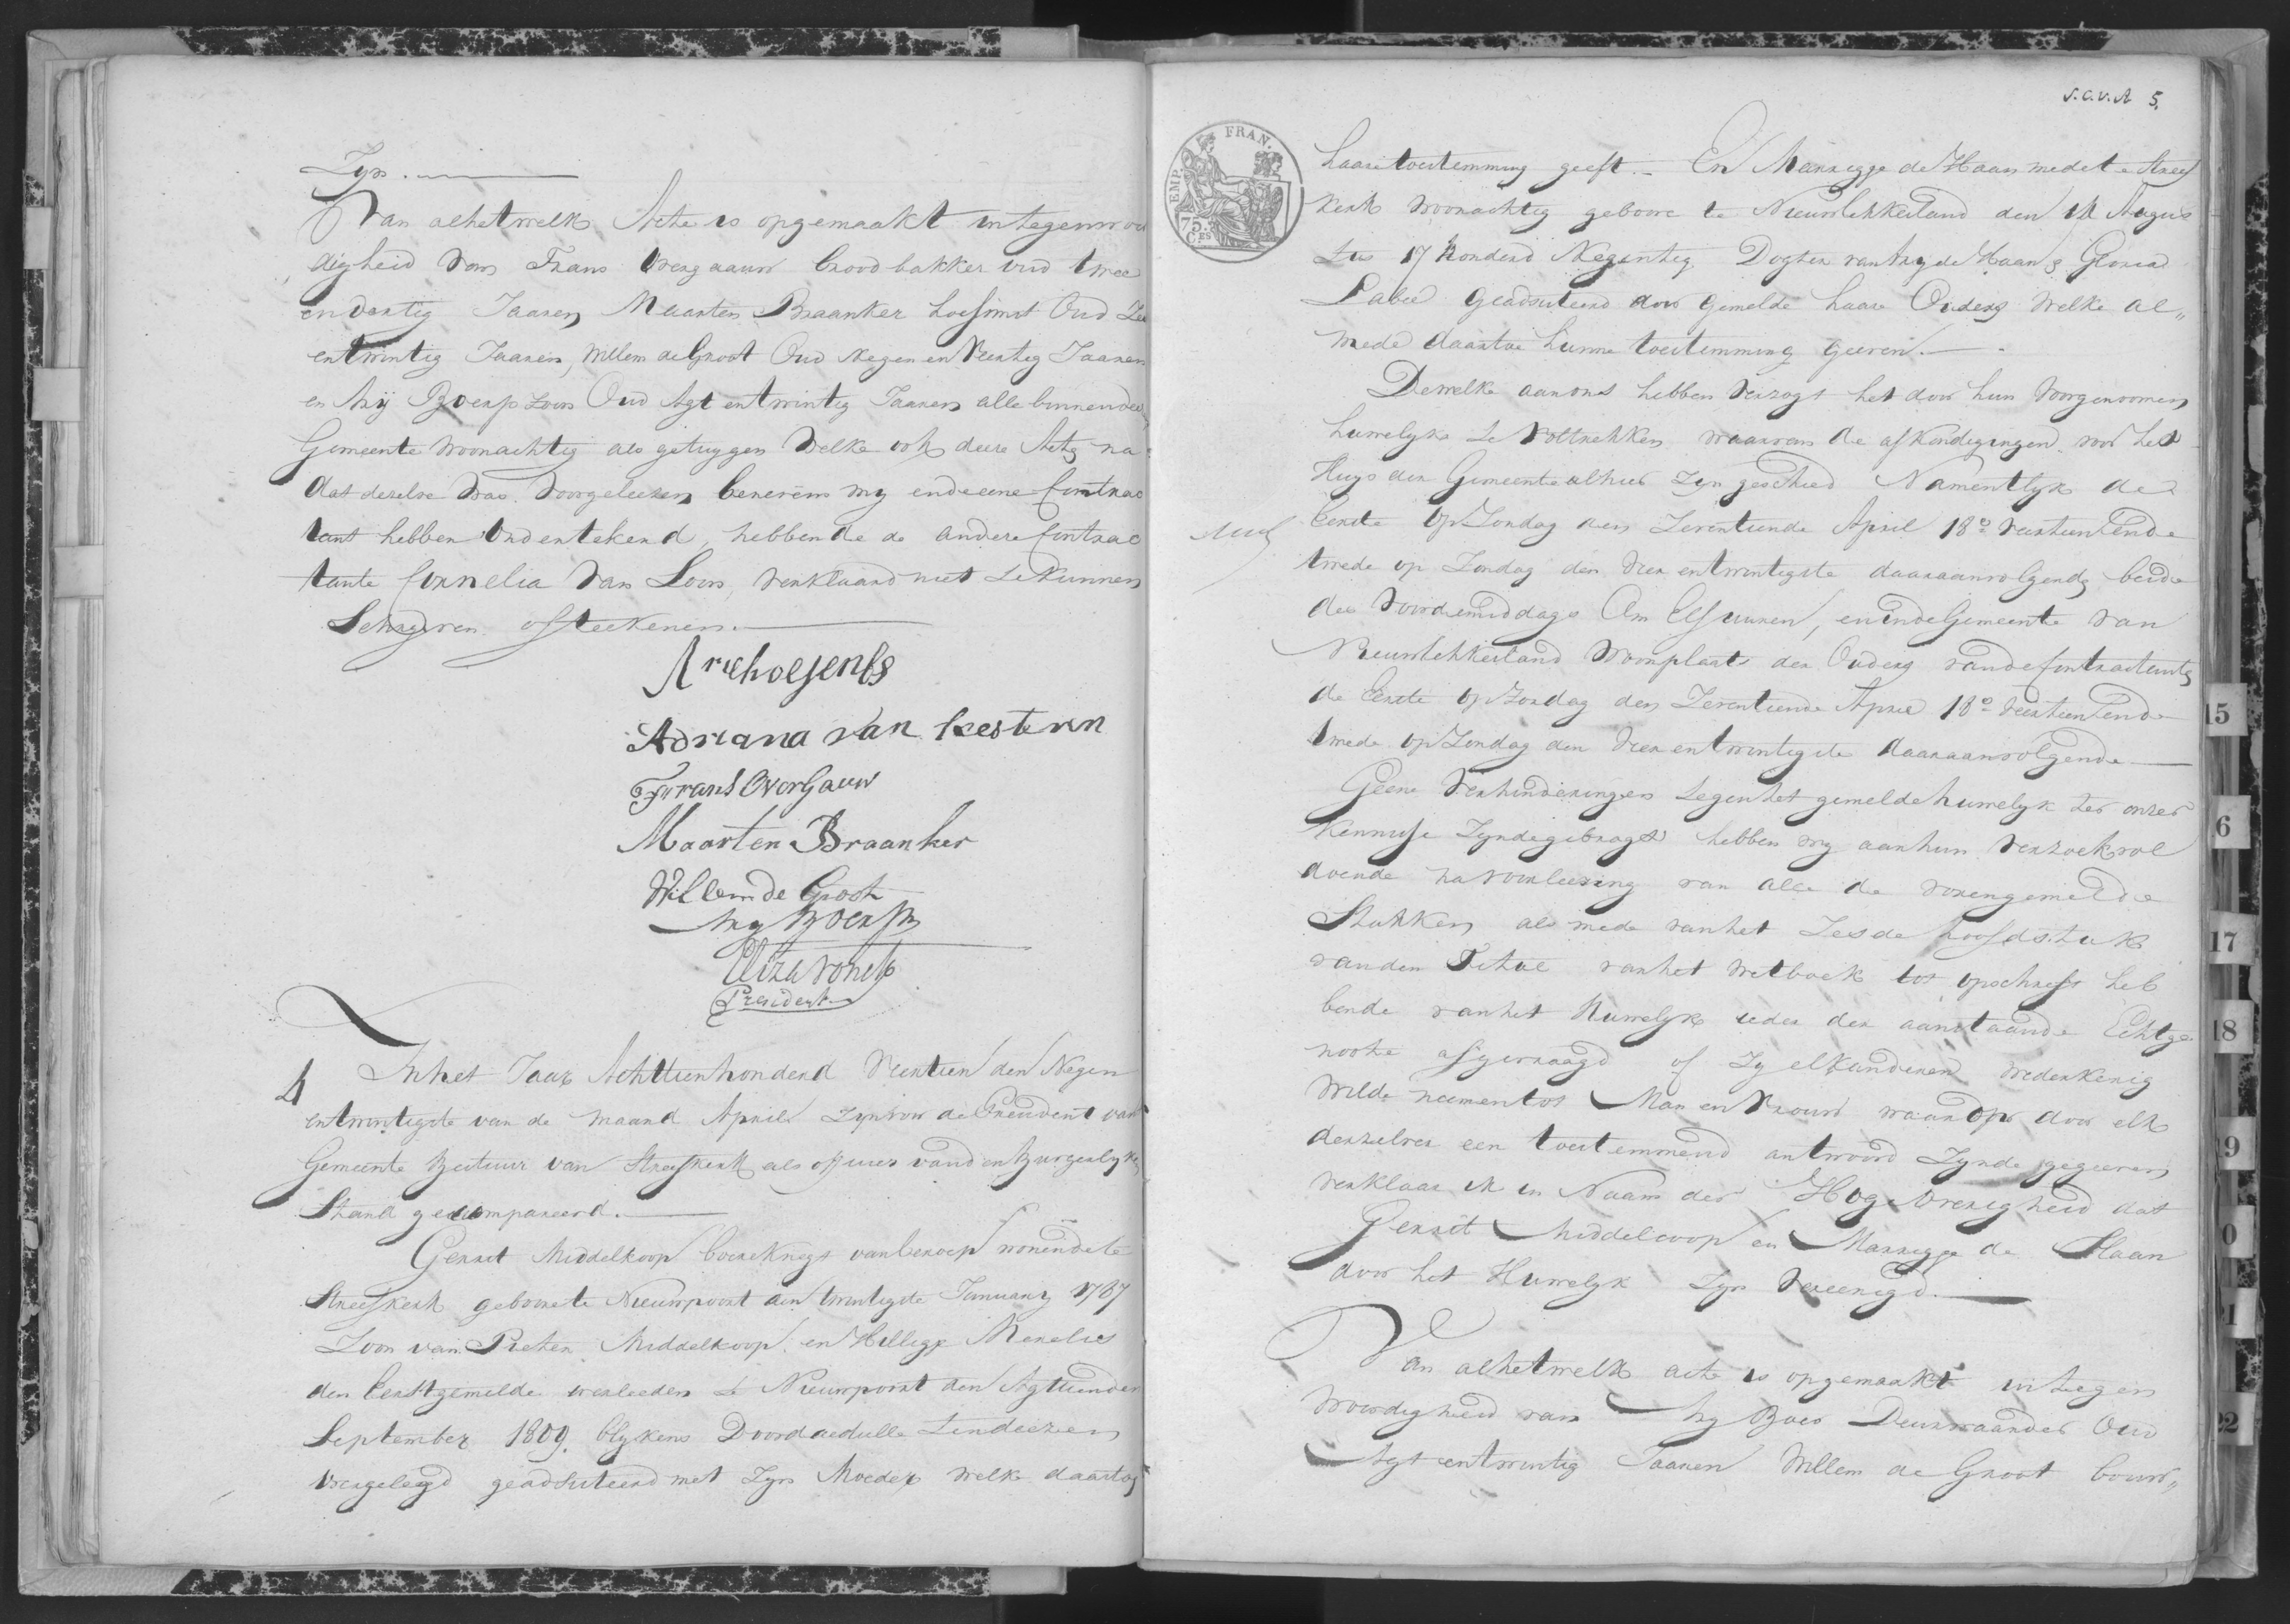 Zyn.
Van al hetwelk Acte is opgemaakt in tegenwoor
digheid van Frans Overgaauw broodbakker oud twee
en dertig Jaaren Maarten Braanker Oud
entwintig Jaaren, Willem de Groot Oud Negen en Veertig Jaaren
en Ary Boer Oud Agt entwintig Jaaren alle binnen deeze
Gemeente woonachtig als getuygen welke ook deeze Acte na
dat dezelve was voorgeleezen benevens my en de eene Contrac
tant hebben Ondertekend, hebbende de andere Contrac
tante Cornelia van Loon, verklaard niet te kunnen
Schryven of teekenen.
Adriana van kesteren
Frans OverGauw
Maarten Braanker
Willem de Groot
Ary Boer
President
4 In het Jaar Achttienhonderd Veertien den Negen
entwintigste van de maand April Zyn voor de President van
Gemeente Bestuur van Streefkerk als officier van den Burgerlyken
Stand gecompareerd.
Gerrit Middelkoop boereknegt van beroep wonende te
Streefkerk geboore te Nieuwpoort den twintigste January 1787
Zoon van Pieter Middelkoop en Hilligje Merelies
den Eerstgemelde overleeden te Nieuwpoort den Agtiender
September 1809. blykens Doordaedulle ten deezen
overgelegd geadsisteerd met Zyn Moeder welk daartoe
S.a.v.A 5.
EMP. FRAN.
75. Ces
haare toestemming geeft. En Marrigje de Haan mede te Streef
kerk woonachtig geboore te Nieuwlekkerland den 14 Augus
tus 17 honderd Negentig Dogter van Ary de Haan &
Labee geadsisteerd door gemelde haare Ouders welke al„
mede daartoe hunne toestemming geeven.
Dewelke aan ons hebben verzogt het door hun voorgenoomen
huwelyk te voltrekken waarvan de afkondigingen voor het
Huys der Gemeente alhier Zyn geschied Namentlyk de
Eerste op Zondag den Zeventiende April 18e veertien en de
twede op Zondag den Vier entwintigste daaraanvolgende beide
des voordemiddags Om Elf uuren, en in de Gemeente van
Nieuwlekkerland Woonplaats der Ouders van de Contractante
de Eerste op Zondag den Zeventiende April 18e veertien en de
twede op Zondag den Vier entwintigste daaraanvolgende
Geene Verhinderingen tegen het gemelde huwelyk ter onzer
Kennisse Zynde gebragt hebben wy aan hun verzoek vol
doende na voorleezing van alle de vorengemelde
Stukken als mede van het Zesde hoofdstuk
van den Titul van het wetboek tot opschrift heb
bende van het Huwelyk ieder der aanstaande Echtge
noote afgevraagd of Zy elkanderen wederkerig
wilde neemen tot Man en Vrouw waarop door elk
derzelver een toestemmend antwoord Zynde gegeeven
verklaar ik in Naam der Hoge Overigheid dat
Gerrit Middelcoop en Marrigje de Haan
door het Huwelyk Zyn vereenigd.
Van al hetwelk acte is opgemaakt in teegen
woordigheid van Ary Boer Deurwaarder Oud
Agt entwintig Jaaren Willem de Groot bouw„
15
16
17
18
19